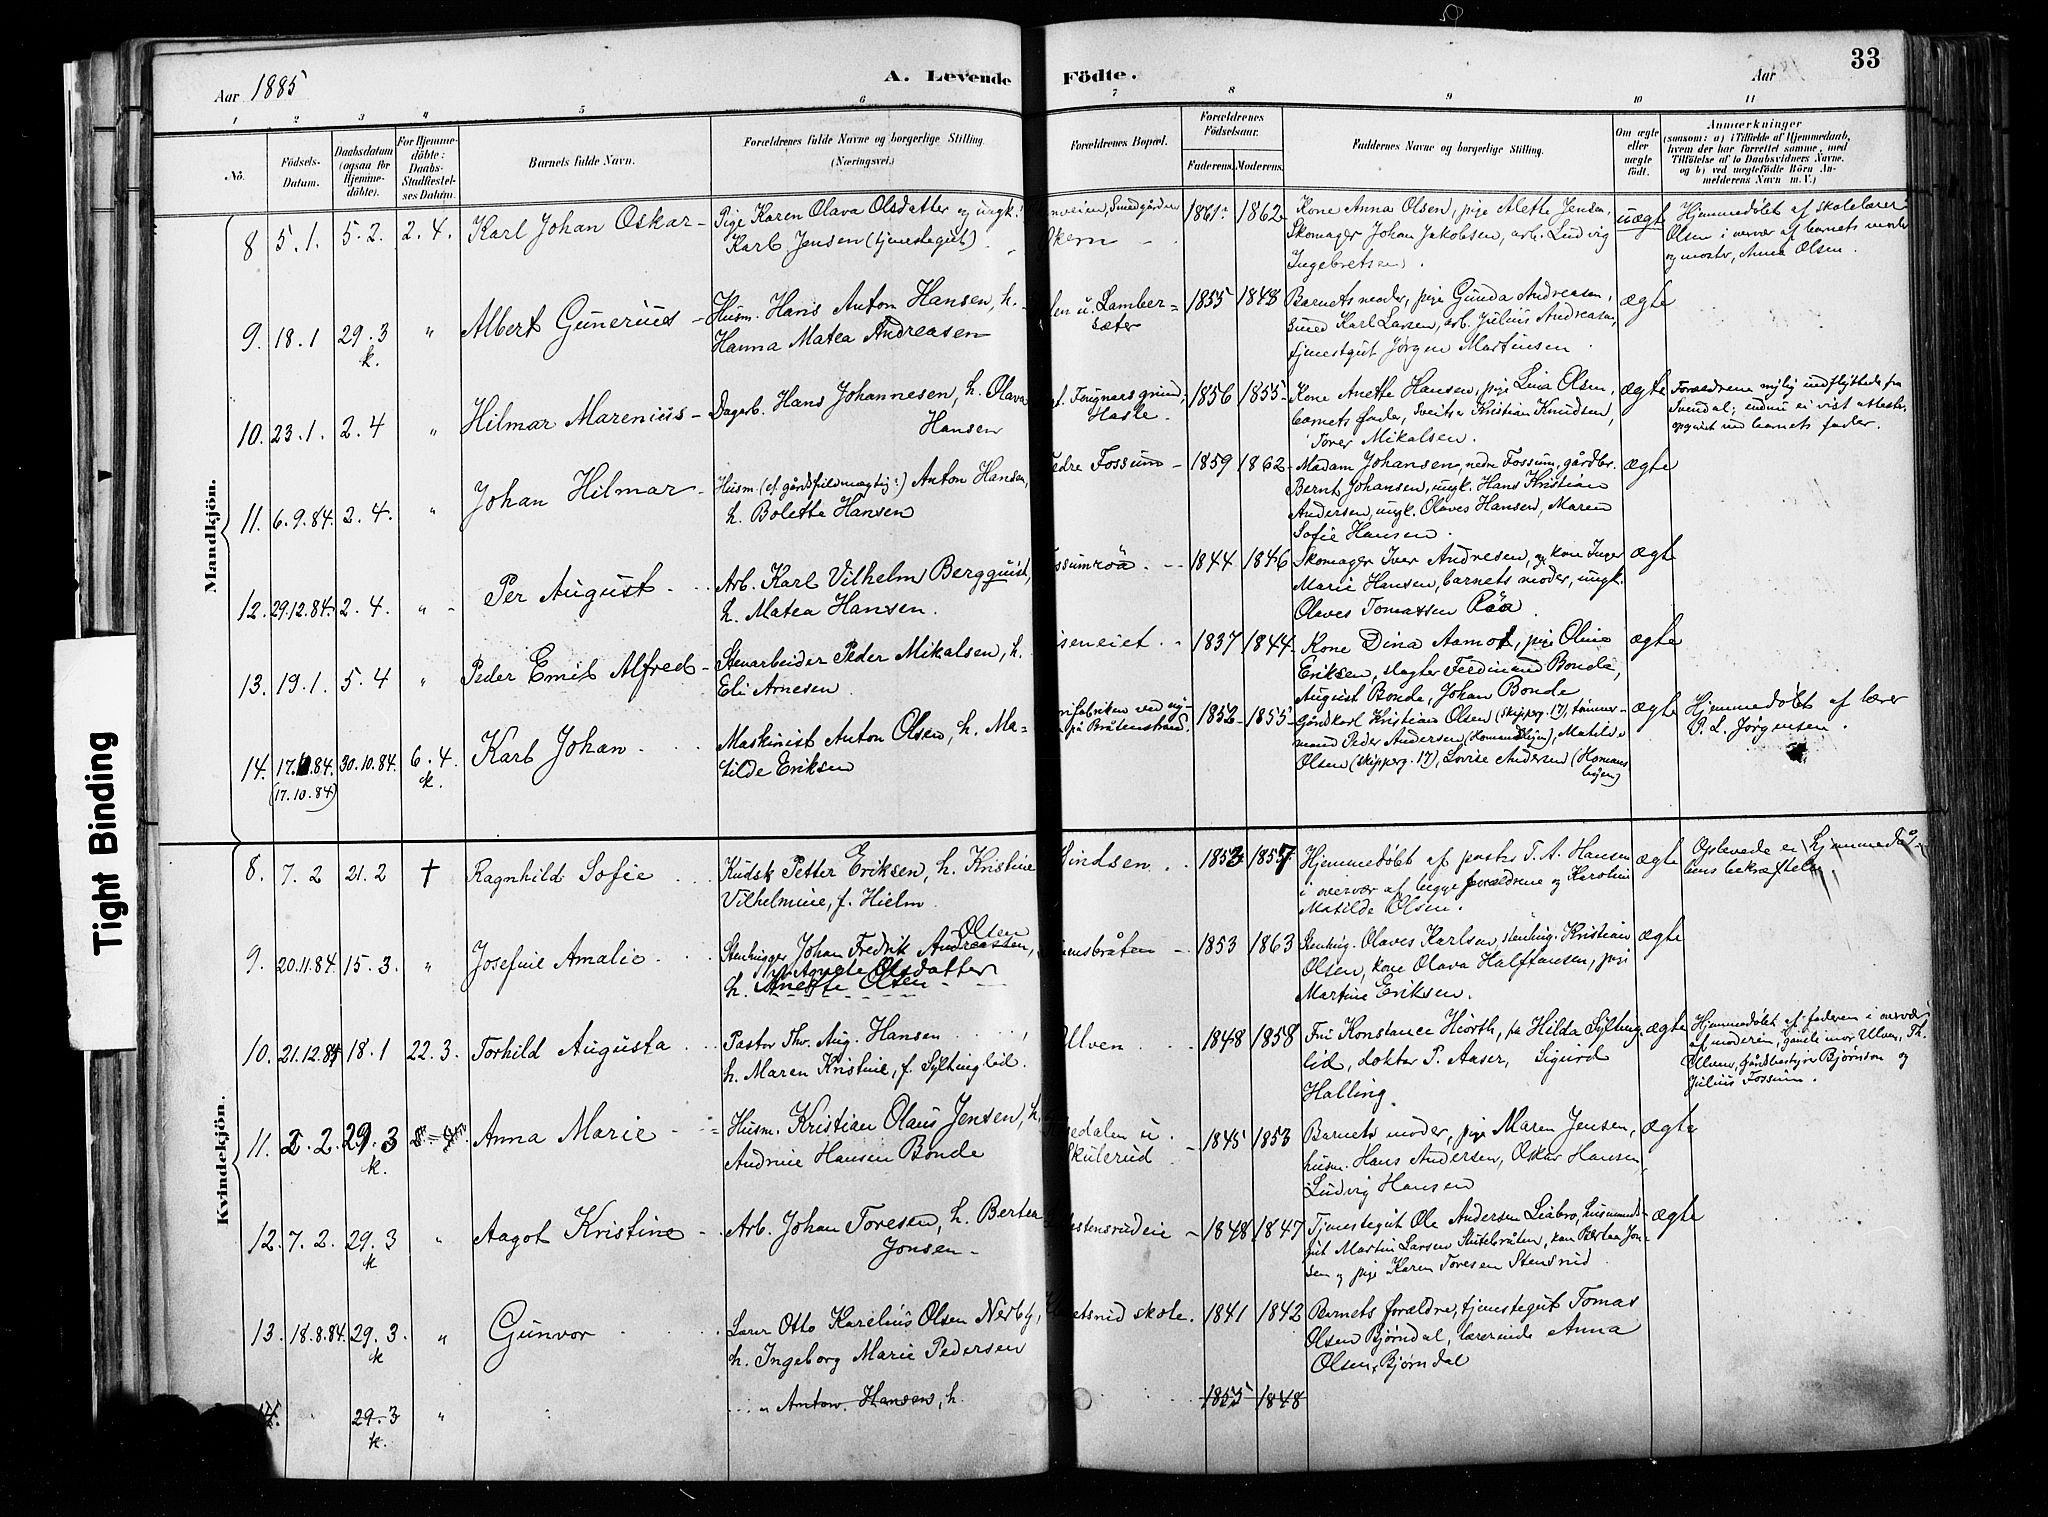 33
Aar 1885
A. Levende
Födte.
Aar
1 2 3 4 5 6 7 8 9 10 11
No.
Födsels-
Datum.
Daabsdatum
(ogsaa for
Hjemme-
döbte).
For Hjemme-
döbte:
Daabs-
Stadfæstel-
ses Datum.
Barnets fulde Navn.
Forældrenes fulde Navne og borgerlige Stilling
(Næringsvei.)
Forældrenes Bopæl.
Forældrenes
Födselsaar.
Faderens. Moderens.
Faddernes Navne og borgerlige Stilling.
Om ægte
eller
uægte
födt.
Anmærkninger
(saasom: a) i Tilfælde af Hjemmedaab,
hvem der har forrettet samme, med
Tilföielse af to Daabsvidners Navne.
og b) ved uægtefödte Börn An-
melderens Navn m. V.)
Mandkjön.
8 5.1. 5.2. 2.4. Karl Johan Oskar Pige Karen Olava Olsdatter og ungk.
Karl Jensen (tjenestegut)
Smedgården 1861 1862 Kone Anna Olsen, pige Alette Jensen,
Skomager Johan Jakobsen, arb. Ludvig
Ingebretsen. uægte
Hjemmedøbt af skolelærer
Olsen i overvær af barnets moder
og moster, Anna Olsen.
9. 18.1 29.3 k. " Albert Gunerius Husm. Hans Anton Hansen, h.
Hanna Matea Andreasen
u. Lamber-
sæter 1855 1848 Barnets moder, pige Gunda Andreasen,
smed Karl Larsen, arb. Julius Andreasen,
tjenestgut Jørgen Martinsen ægte
10. 23.1. 2.4 " Hilmar Marenius Dagarb. Hans Johannesen, h. Olava
Hansen
Hasle. 1856 1855 Kone Anette Hansen, pige Lina Olsen,
barnets fader, Kristian Knudsen,
Tover Mikalsen. ægte
Forældrene nylig indflyttede fra
11. 6.9.84. 2.4. " Johan Hilmar Husm. (ef. gårdsfuldmægtig:) Anton Hansen,
h. Bolette Hansen
Nedre Fossum 1859 1862 Madam Johansen, nedre Fossum, gårdbr.
Bernt Johansen, ungk. Hans Kristian
Andersen, ungk. Olaves Hansen, Maren
Sofie Hansen. ægte
12. 29.12.84. 2.4. " Per August Arb. Karl Vilhelm Bergquist,
h. Matea Hansen.
1844 1846 Skomager Iver Andresen, og kone Inger
Marie Hansen, barnets moder, ungk.
Olaves Tomassen Röa. ægte
13. 19.1. 5.4 " Peder Emil Alfred Stenarbeider Peder Mikalsen, h.
Eli Arnesen
1837 1844 Kone Dina Aamot, pige Oline
Eriksen, slagter Ferdinand Bonde,
August Bonde, Johan Bonde ægte
14. 17. .84. (17.10.84) 30.10.84. 6.4. k. Karl Johan Maskinist Anton Olsen, h. Ma-
tilde Eriksen
fabriken ved
på Bråtenstrand. 1852 1855 Gårdkarl Kristian Olsen (skipperg. 17), tømmer-
mand Peder Andersen (Homansbyen), Matilde
Olsen (skipperg. 17), Lovise Andersen (Homans-
byen) ægte
Hjemmedøbt af lærer
P. L. Jørgensen.
Kvindekjön.
8. 7.2 21.2 † Ragnhild Sofie Kudsk Petter Eriksen, h. Kristine
Vilhelmine, f. Hielm
1853 1857 Hjemmedøbt af pastor T. A. Hansen
i overvær af begge forældrene og Karoline
Matilde Olsen. ægte
Oplevede ei hjemmedå-
bens bekræftelse.
9. 20.11.84. 15.3. " Josefine Amalie Stenhugger Johan Fredrik Andreassen, Olsen
h. Anette Olsen Olsdatter
1853 1863 Stenhug. Olaves Karlsen, stenhug. Kristian
Olsen, kone Olava Halftansen, pige
Martine Eriksen. ægte
10. 21.12.84 18.1 22.3. Torhild Augusta Pastor Thv. Aug. Hansen
h. Maren Kristine, f. Syltinglid.
Ulven 1848 1858 Fru Konstance Hiorth, Hilda Sylting-
lid, doktor P. Aaser, Sigurd
Halling ægte
Hjemmedøbt af faderen i overvær
af moderen, gamle mor Ulven, Th.
Ulven, Gårdbestyrer Bjørnson og
Julius Fossum.
11. 2.2. 29.3 k. Anna Marie Husm. Kristian Olaus Jensen, h.
Andrine Hansen Bonde
u.
Skulerud 1845 1853 Barnets moder, pige Maren Jensen,
husm. Hans Andersen, Oskar Hansen,
Ludvig Hansen ægte
12. 7.2. 29.3 k " Aagot Kristine Arb. Johan Toresen, h. Bertea
Jonsen
1848 1847 Tjenestegut Ole Andersen Liabro, husmands-
gut Martin Larsen Stutebråten, kone Bertea Jon-
sen og pige Karen Toresen Stensrud ægte
13. 18.8.84. 29.3. k " Gunvor Lærer Otto Karelius Olsen Nerby,
h. Ingeborg Marie Pedersen
skole. 1841 1842 Barnets forældre, tjenestegut Tomas
Olsen Bjørndal, lærerinde Anna
Olsen, Bjørndal
14. 29.3 k. " Anton Hansen, h. 1855 1848
Tight Binding